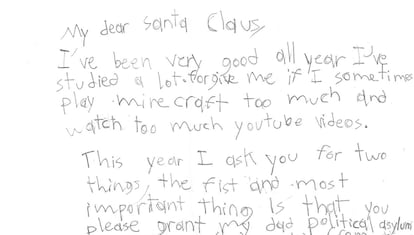 My dear Santa Claus,
I've been very good all year I've
studied a lot. forgive me if I sometimes
play minecraft too much and
watch too much youtube videos.
This year I ask you for two
things, the fist and most
important thing is that you
please grant my dad political asylum